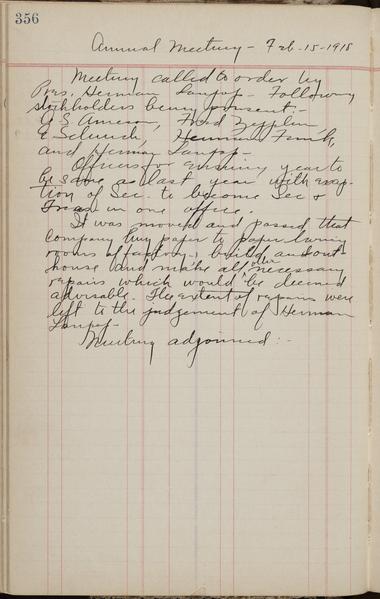 356
Annual Meeting - Feb-15-1918
Meeting called to order by
Pres. Herman Following
stockholders being present:-
G S Fred Zepplin
E
and Herman
Officers for ensuing year to
be same as last year with excep-
tion of Sec. to become Sec &
Treas in one office.
It was moved and passed that
company buy paper to paper living
rooms of factory, build an out
house and make all other necessary
repairs which would be deemed
advisable. The extent of repairs were
left to the judgement of Herman
Meeting adjourned:-